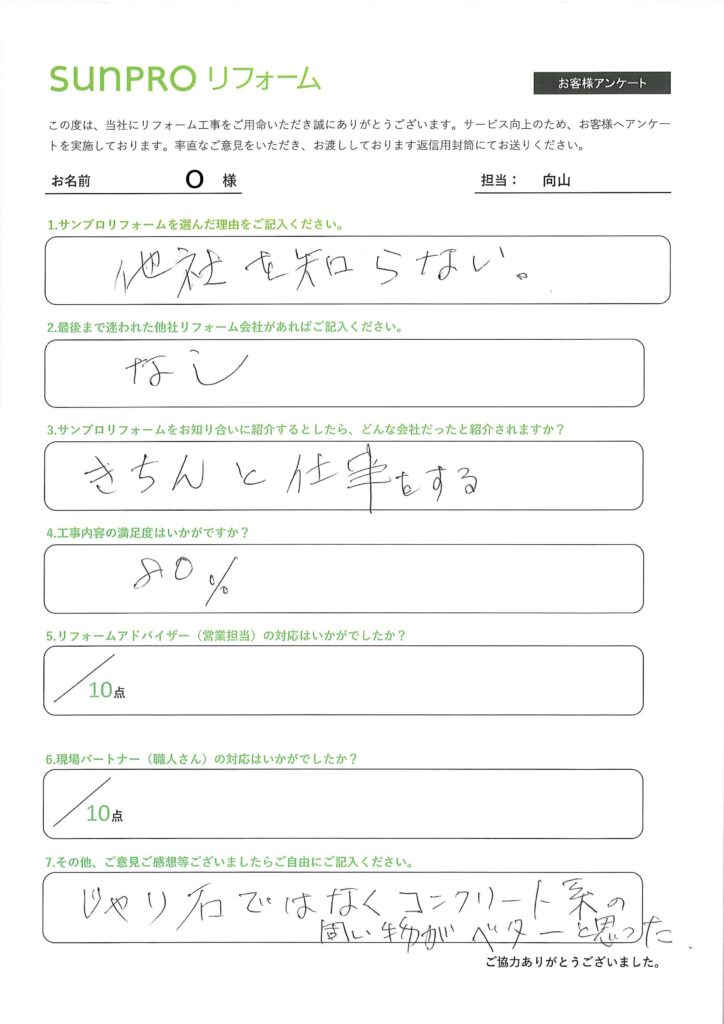 SUNPRO リフォーム
お客様アンケート
この度は、当社にリフォーム工事をご用命いただき誠にありがとうございます。サービス向上のため、お客様へアンケー
トを実施しております。率直なご意見をいただき、お渡ししております返信用封筒にてお送りください。
お名前 O 様 担当: 向山
1.サンプロリフォームを選んだ理由をご記入ください。
他社を知らない。
2.最後まで迷われた他社リフォーム会社があればご記入ください。
なし
3.サンプロリフォームをお知り合いに紹介するとしたら、どんな会社だったと紹介されますか?
きちんと仕事をする
4.工事内容の満足度はいかがですか?
80%
5.リフォームアドバイザー(営業担当)の対応はいかがでしたか?
/10点
6.現場パートナー(職人さん)の対応はいかがでしたか?
/10点
7.その他、ご意見ご感想等ございましたらご自由にご記入ください。
じゃり石ではなくコンクリート系の
固い物がベターと思った.
ご協力ありがとうございました。